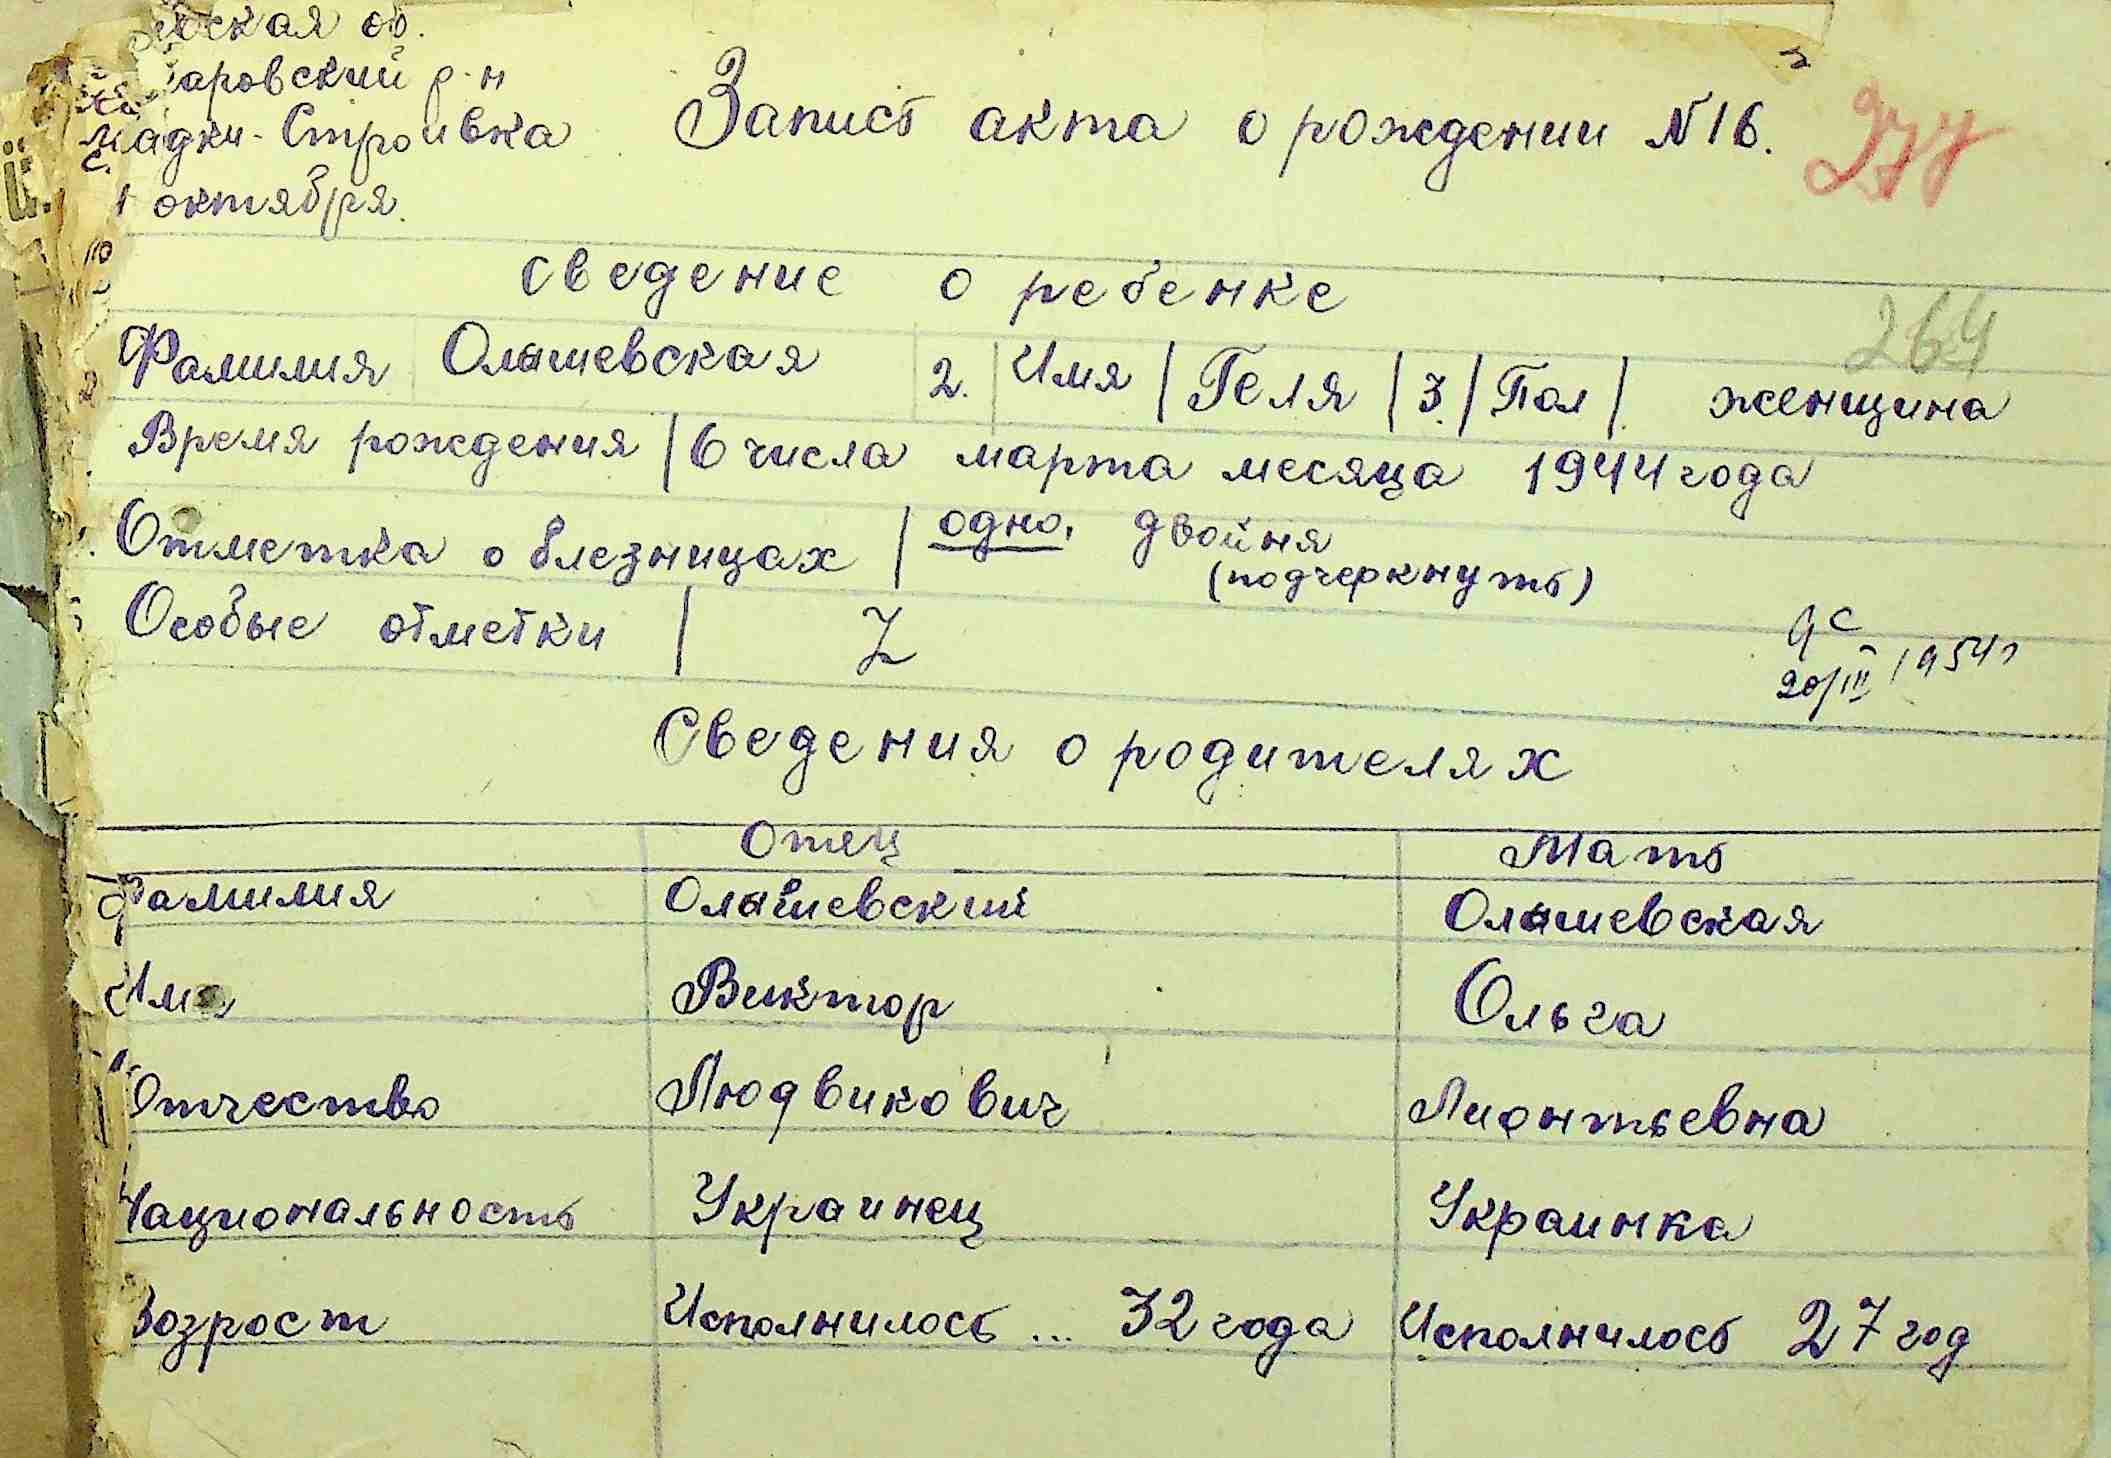 ская об.
аровский р-н
Стройвка
октября.
Запись акта о рождении №16.
сведение о ребенке
264
Фамилия Олышевская 2. Имя / Геля / 3 / Пол / женщина
Время рождения / 6 числа марта месяца 1944 года
Отметка о блезницах / одно, двойня
(подчеркнуть)
Особые отметки / Z
20/III 1954г
Сведения о родителях
Отец Мать
Фамилия Олышевский Олышевская
Имя Виктор Ольга
Отчество Людвикович Лионтьевна
Национальность Украинец Украинка
Возрост Исполнилось ... 32 года Исполнилось 27 год